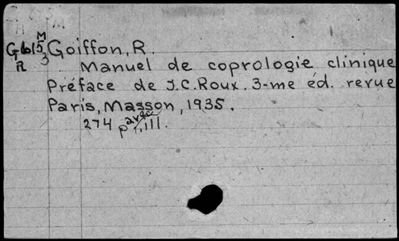 M
G615 Goiffon, R.
R 3
Manuel de coprologie clinique
Préface de J.C.Roux. 3-me éd. revue
Paris, Masson, 1935.
274 p., avec ill.